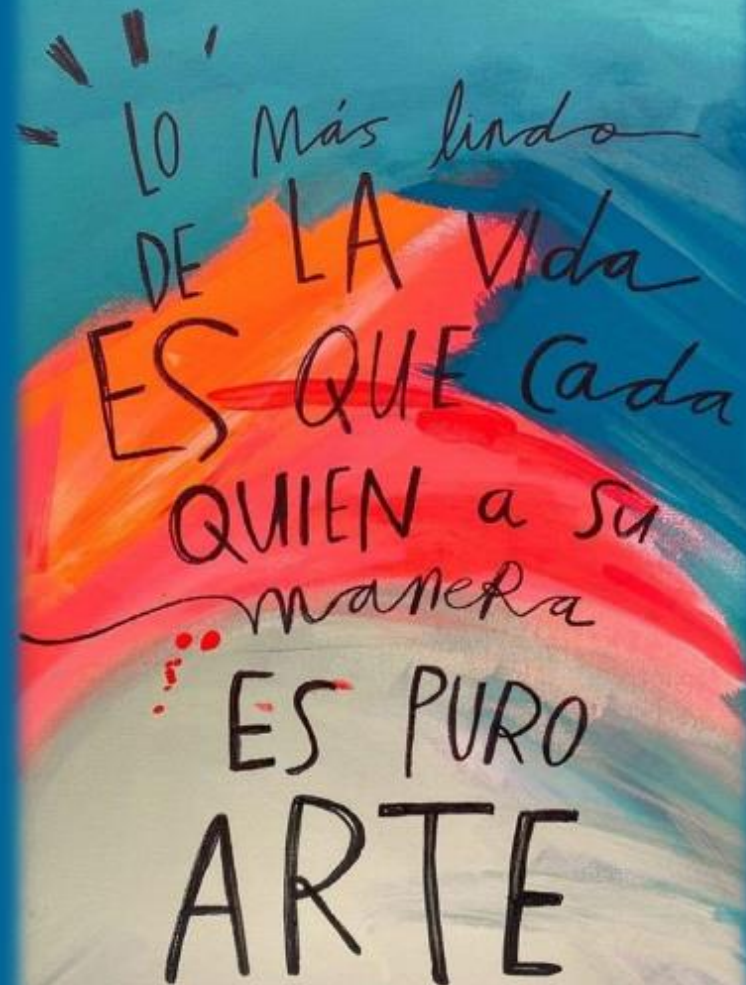 LO Más lindo
DE LA VIda
ES QUE Cada
QUIEN a su
maneRa
ES PURO
ARTE